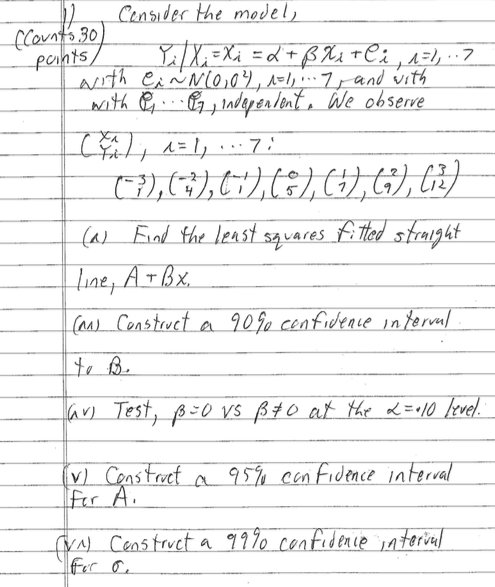 1) Consider the model,
(Counts 30 points)
Yi/Xi=xi = α + βxi + ei, i=1, ..7
with ei ~ N(0,σ²), i=1, ...7, and with
with e1 ... e7, independent. We observe
(Xi Yi), i=1, ...7:
(-3 1), (-2 4), (-1 1), (0 5), (1 7), (2 9), (3 12)
(i) Find the least squares fitted straight
line, A + Bx.
(iii) Construct a 90% confidence interval
to B.
(iv) Test, β=0 vs β≠0 at the α=.10 level.
(v) Construct a 95% confidence interval
for A.
(vi) Construct a 99% confidence interval
for σ.